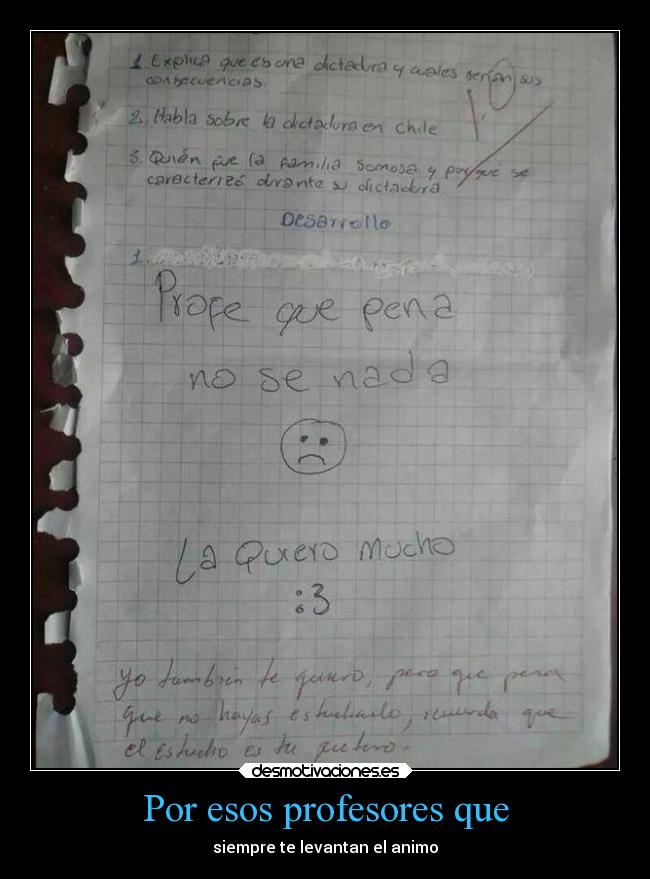 1. Explica que es una dictadura y cuales serían sus
consecuencias.
2. Habla sobre la dictadura en chile
3. Quién fue la familia somosa y por qué se
caracterizó durante su dictadura.
Desarrollo
1.
Profe que pena
no se nada
La Quiero mucho
:3
yo también te quiero, pero que pena
que no hayas estudiado, recuerda que
el estudio es tu futuro.
desmotivaciones.es
Por esos profesores que
siempre te levantan el animo